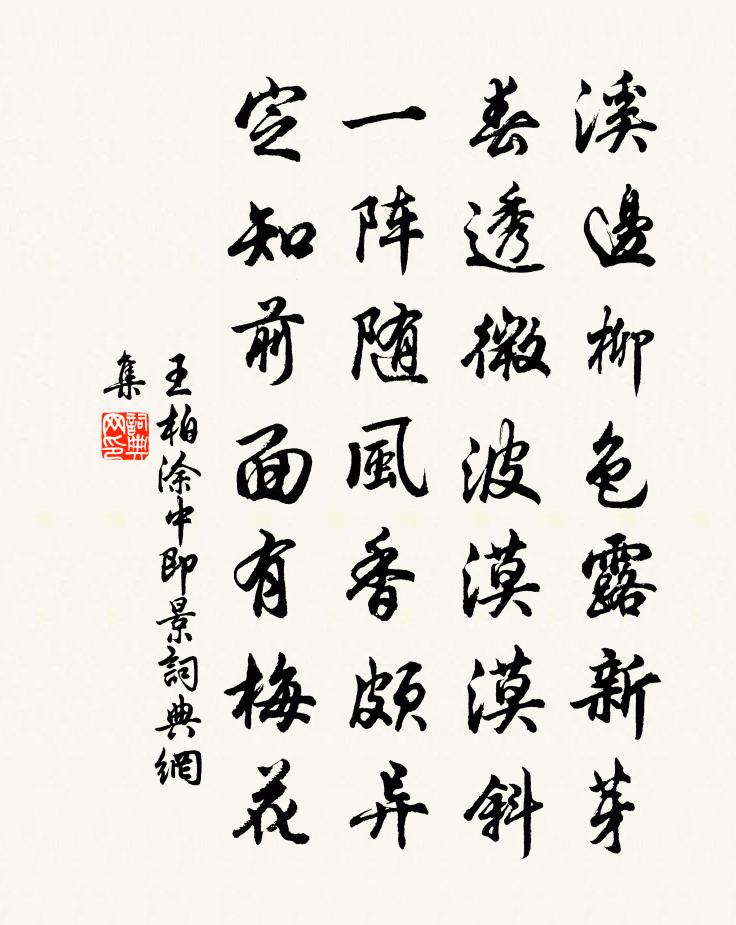 溪邊柳色露新芽
春透微波漠漠斜
一阵随風香頗异
定知前面有梅花
王柏涂中即景詞典網
集
詞典
网印